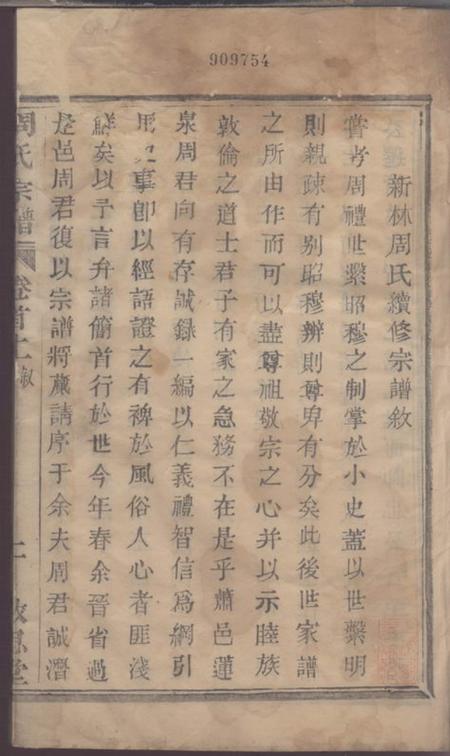 909754
新林周氏續修宗譜敘
嘗考周禮世繫昭穆之制掌於小史蓋以世繫明
則親疎有别昭穆辨則尊卑有分矣此後世家譜
之所由作而可以盡尊祖敬宗之心并以示睦族
敦倫之道士君子有家之急務不在是乎蕭邑蓮
泉周君向有存誠録一編以仁義禮智信爲綱引
事即以經語證之有裨於風俗人心者匪淺
鮮矣以予言弁諸簡首行於世今年春余晉省過
邑周君復以宗譜將蕆請序于余夫周君誠潛
周氏宗譜 卷首上 敘